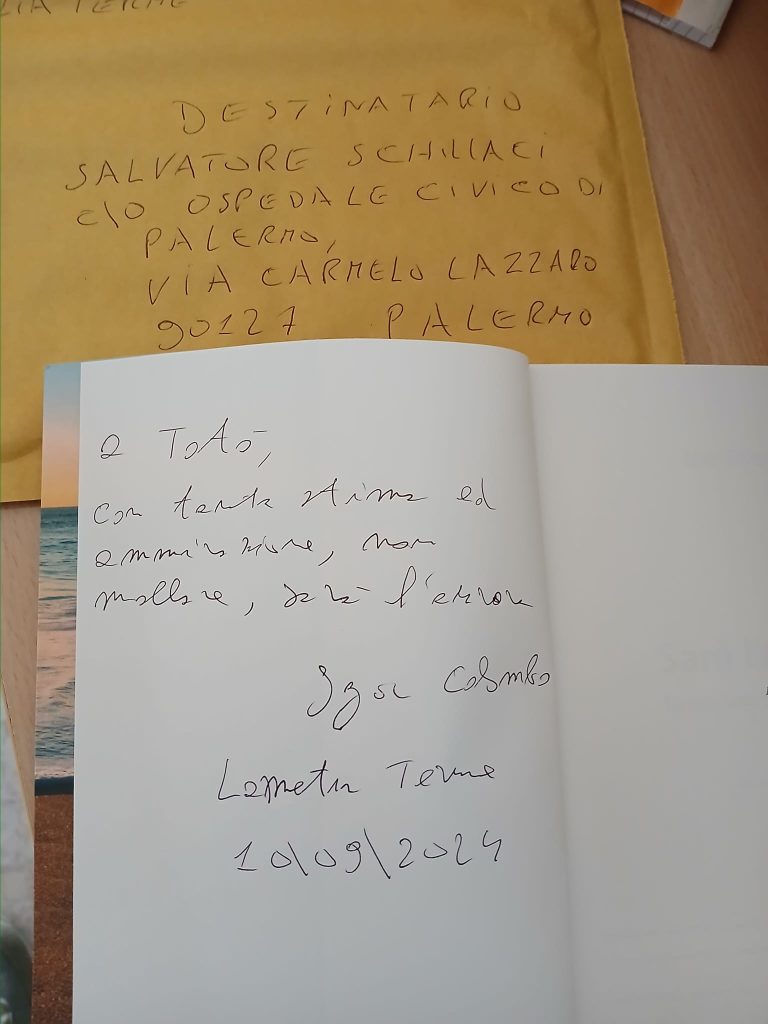 DESTINATARIO
SALVATORE SCHILLACI
C\O OSPEDALE CIVICO DI
PALERMO,
VIA CARMELO LAZZARO
90127 PALERMO
a Totò,
con tanta stima ed
ammirazione, non
mollare, sarà l'errore
Igor Colombo
Lametia Terme
10\09\2024